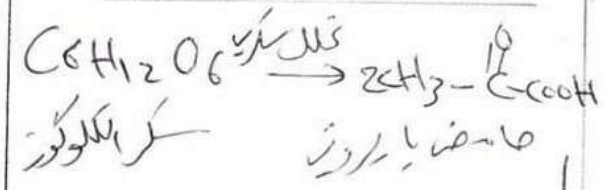 O
C6H12O6 تحلل سكري → 2CH3-C-COOH
سكر الكلوكوز حامض بايروفيك